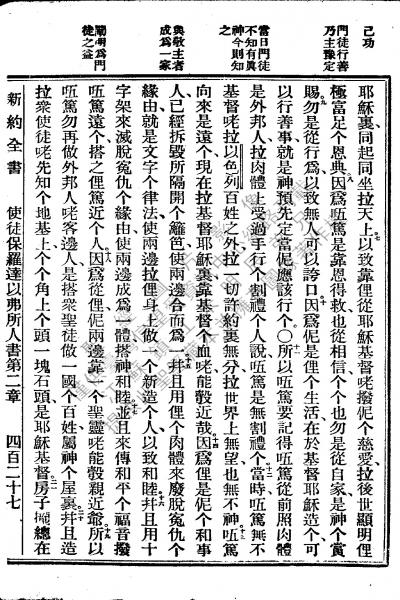 己功
門徒行善
乃主豫定
當日門徒
不知有眞
神今則知
之
與敬主者
成爲一家
闡明爲門
徒之益
耶穌裏同起同坐拉天上以致靠俚從耶穌基督咾撥伲个慈愛拉後世顯明俚
極富足个恩典因爲唔篤是靠恩得救也從相信个个也勿是從自家是神个賞
賜勿是從行爲以致無人可以誇口因爲伲是俚个生活在於基督耶穌造个可
以行善事就是神預先定當伲應該行个〇所以唔篤要記得唔篤從前照肉體
是外邦人拉肉體上受過手行个割禮个人說唔篤是無割禮个當時唔篤無不
基督咾拉以色列百姓之外拉一切許約裏無分拉世界上無望也無不神唔篤
向來是遠个現在拉基督耶穌裏靠基督个血咾能彀近哉因爲俚是伲个和事
人已經拆毀所隔開个籬笆使兩邊合而爲一幷且用俚个肉體來廢脫寃仇个
緣由就是文字个律法使兩邊拉俚身上做一个新造个人以致和睦幷且用十
字架來滅脫寃仇个緣由使兩邊成爲一體搭神和睦並且來傳和平个福音撥
唔篤遠个搭之俚篤近个人因爲從俚伲兩邊靠一个聖靈咾能彀親近爺所以
唔篤勿再做外邦人咾客邊人是搭衆聖徒做一國个百姓屬神个屋裏幷且造
拉衆使徒咾先知个地基上个个角上个頭一塊石頭是耶穌基督房子總在
新約全書 使徒保羅達以弗所人書第二章 四百二十七